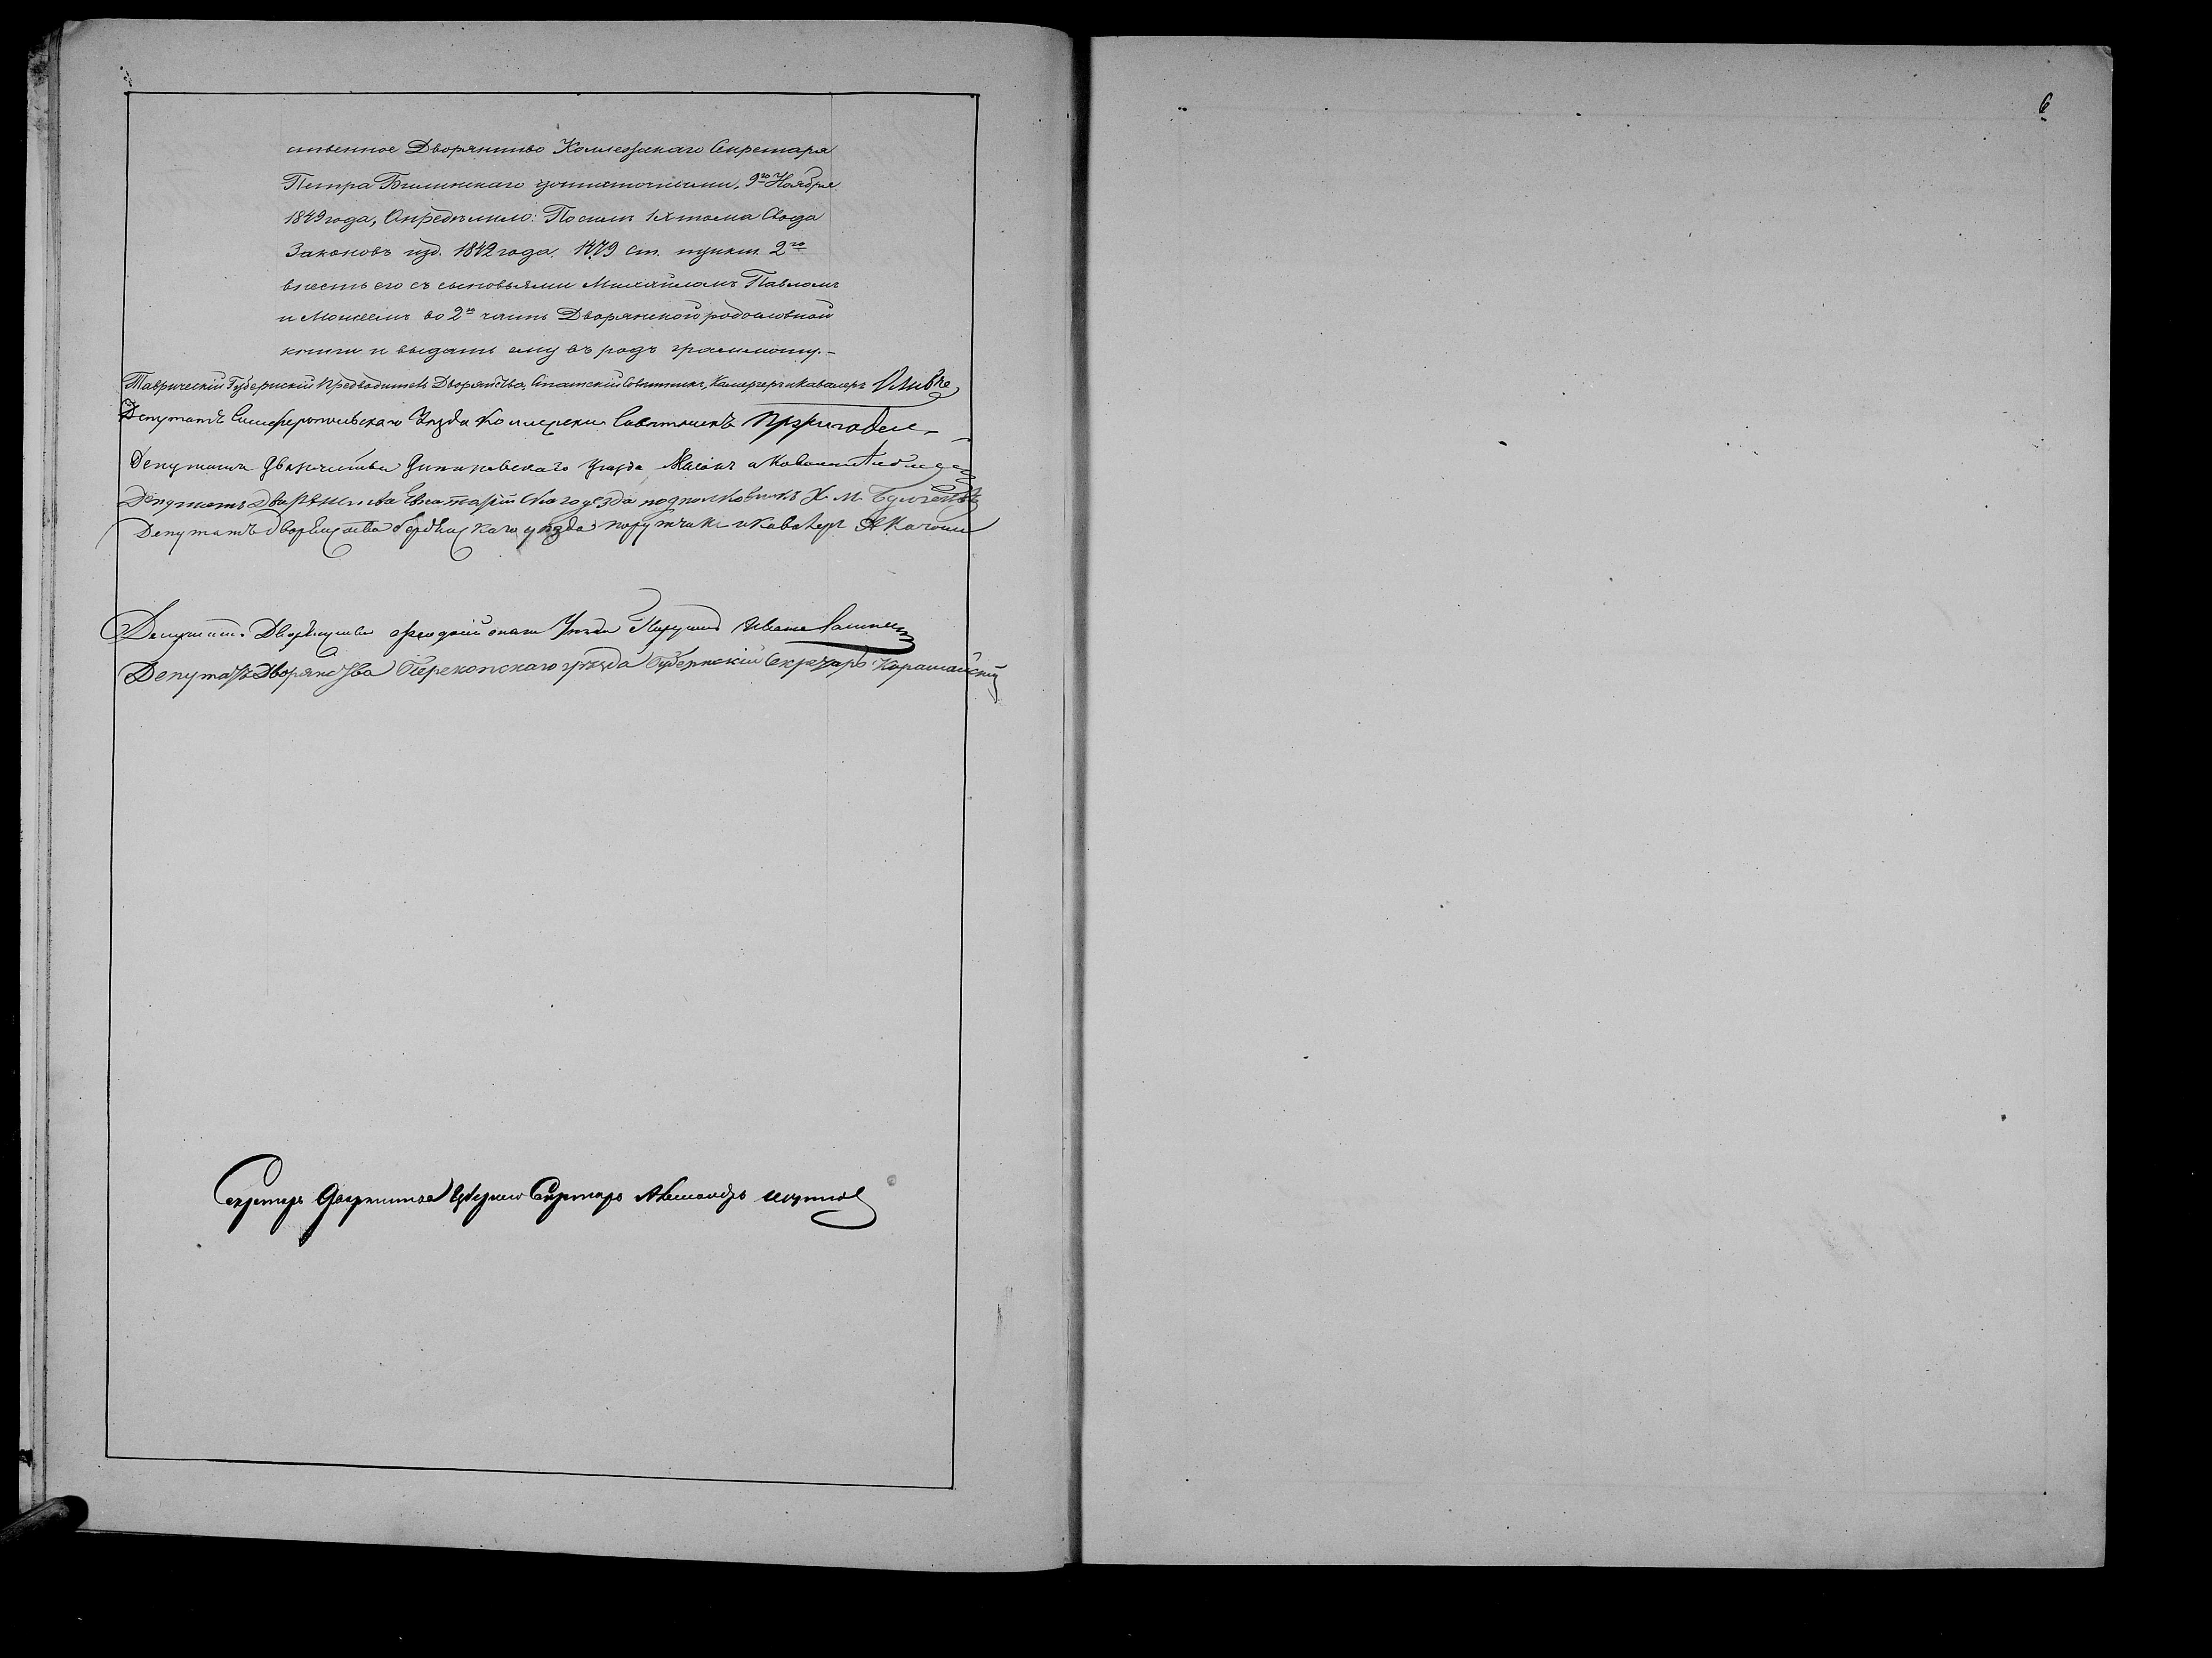 ственное Дворянство Коллежскаго Секретаря
Петра достаточными, 9го Ноября
1849 года, Определило: По силе IX тома Свода
Законовъ изд. 1842 года. 1479 ст. пункт. 2го
внесть его съ сыновьями Михаиломъ Павломъ
и Моисеемъ во 2ю часть Дворянской родословной
книги и выдать ему въ родъ грамоту.-
Таврическій Губернскій Предводитель Дворянства, Статскій Советникъ, Камергеръ и Кавалеръ
Депутатъ Симферопольскаго Уезда Коллежскій Советникъ
Депутатъ Дворянства Уезда Маіоръ и Кавалеръ
Депутатъ Дворянства Евпаторійскаго уезда подполковникъ Х. М.
Депутатъ Дворянства Бердянскаго уезда поручикъ и Кавалеръ
Депутатъ Дворянства Феодосійскаго Уезда Поручикъ Иванъ
Депутатъ Дворянства Перекопскаго уезда Губернскій Секретарь
Секретарь Дворянства Губернскій Секретарь Александръ
6